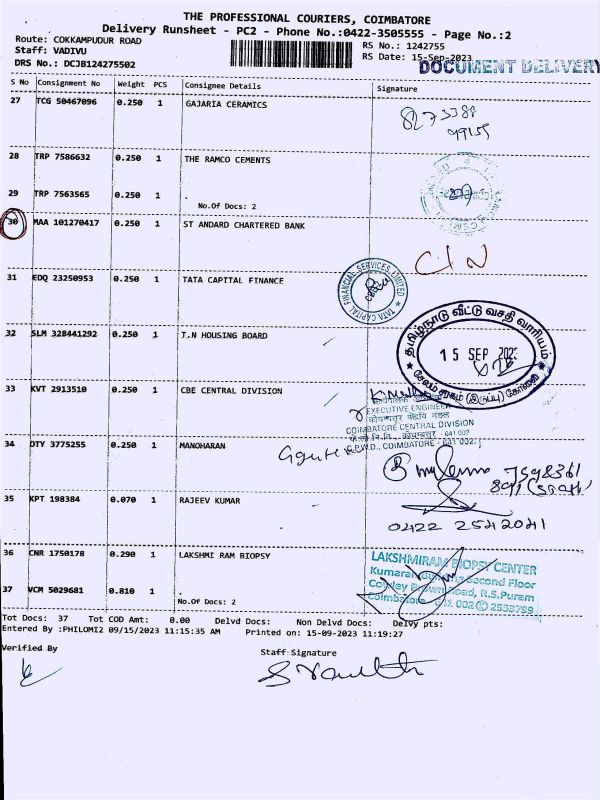 THE PROFESSIONAL COURIERS, COIMBATORE
Delivery Runsheet - PC2 - Phone No.:0422-3505555 - Page No.:2
Route: COKKAMPUDUR ROAD
RS No.: 1242755
Staff: VADIVU
RS Date: 15-Sep-2023
DRS No.: DCJB124275502
DOCUMENT DELIVERY
S No Consignment No Weight PCS Consignee Details Signature
27 TCG 50467096 0.250 1 GAJARIA CERAMICS
8273388
99155
28 TRP 7586632 0.250 1 THE RAMCO CEMENTS
29 TRP 7563565 0.250 1 .
No.Of Docs: 2
30 MAA 101270417 0.250 1 ST ANDARD CHARTERED BANK
31 EDQ 23250953 0.250 1 TATA CAPITAL FINANCE
TATA CAPITAL FINANCIAL SERVICES LIMITED
32 SLM 328441292 0.250 1 T.N HOUSING BOARD
தமிழ்நாடு வீட்டு வசதி வாரியம்
15 SEP 2023
33 KVT 2913510 0.250 1 CBE CENTRAL DIVISION
EXECUTIVE ENGINEER
COIMBATORE CENTRAL DIVISION
C.P.W.D., COIMBATORE - 641 002.
34 DTY 3775255 0.250 1 MANOHARAN
35 KPT 198384 0.070 1 RAJEEV KUMAR
0422 2542041
36 CNR 1750178 0.290 1 LAKSHMI RAM BIOPSY
LAKSHMIRAM BIOPSY CENTER
Second Floor
Cowley Brown Road, R.S.Puram
Coimbatore - 641 002 ✆ 2553799
37 VCM 5029681 0.810 1 .
No.Of Docs: 2
Tot Docs: 37 Tot COD Amt: 0.00 Delvd Docs: Non Delvd Docs: Delvy pts:
Entered By :PHILOMI2 09/15/2023 11:15:35 AM Printed on: 15-09-2023 11:19:27
Verified By Staff Signature